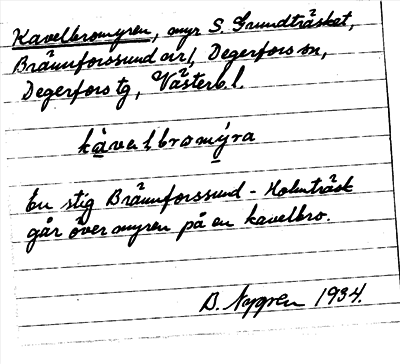 Kavelbromyren, myr S. Grundträsket,
Brännforssund arr, Degerfors sn,
Degerfors tg, Västerb. l.
kàvalbromýra
En stig Brännforssund - Holmträsk
går över myren på en kavelbro.
B. Nygren 1934.